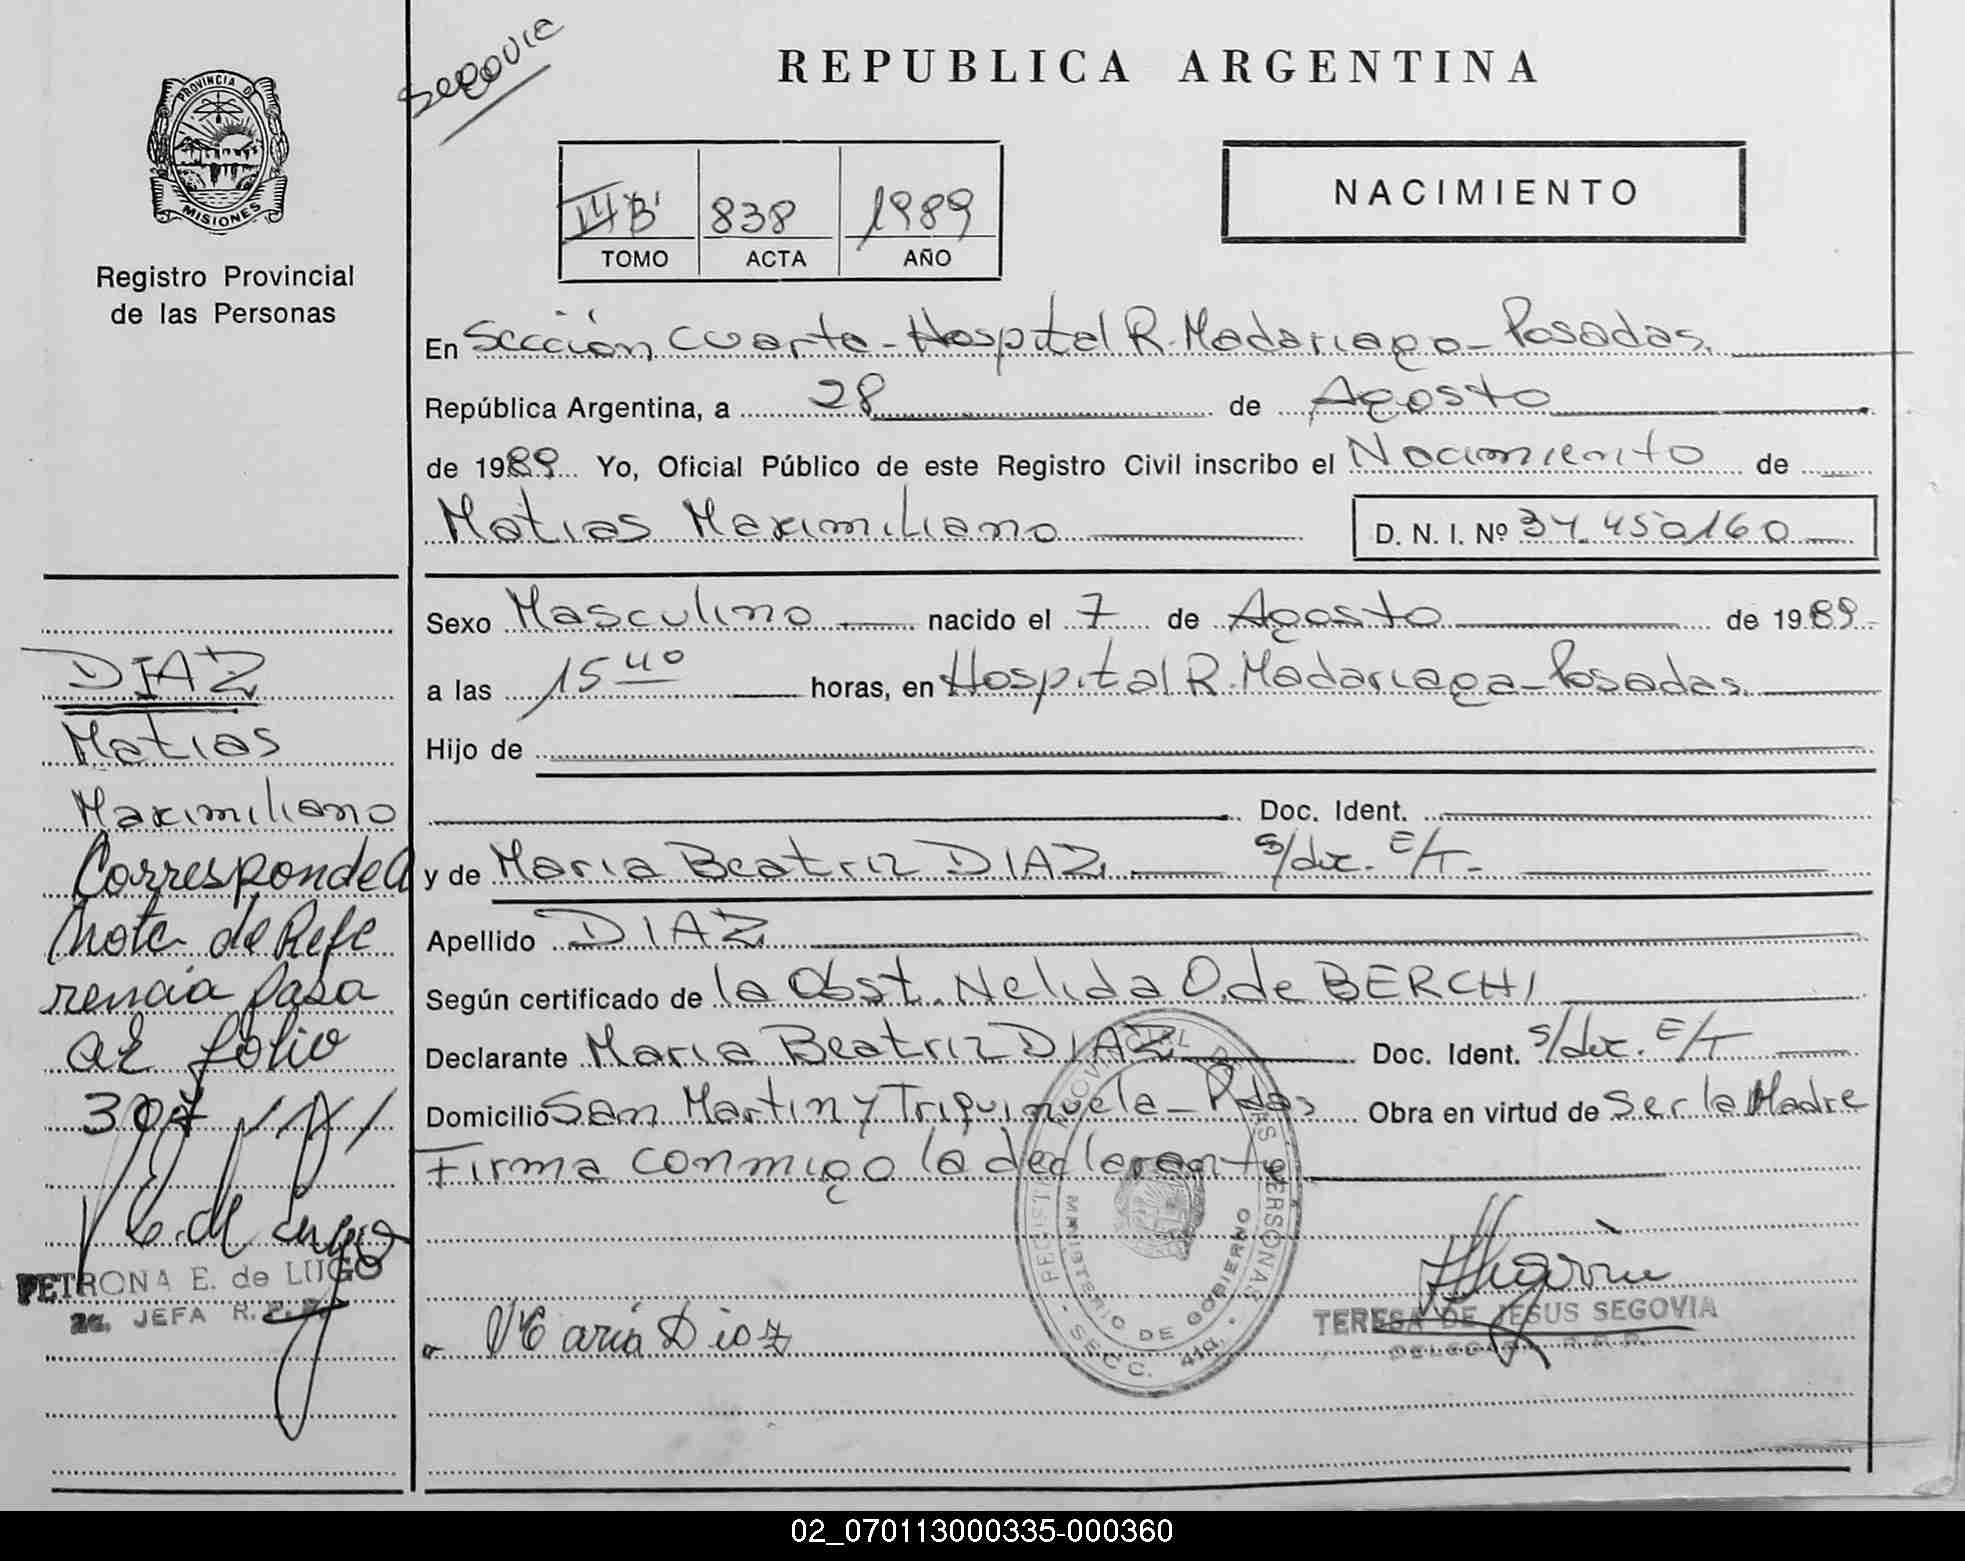 Segovia
REPUBLICA ARGENTINA
PROVINCIA DE
MISIONES
Registro Provincial
de las Personas
838 1989
TOMO ACTA AÑO
NACIMIENTO
En Sección Cuarta - Hospital R. Madariaga - Posadas.
República Argentina, a 28 de Agosto
de 1989 Yo, Oficial Público de este Registro Civil inscribo el Nacimiento de
Matias Maximiliano D. N. I. Nº 34.450160
Sexo Masculino nacido el 7 de Agosto de 1989
a las 15 40 horas, en Hospital R. Madariaga - Posadas.
Hijo de
Doc. Ident.
y de Maria Beatriz DIAZ s/doc. E/T.
Apellido DIAZ
Según certificado de la Obst. Nelida O. de BERCHI
Declarante Maria Beatriz DIAZ Doc. Ident. s/doc. E/T
Domicilio San Martin y Triquinuela - Pdas Obra en virtud de Ser la Madre
Firma conmigo la declarante
DIAZ
Matias
Maximiliano
Corresponde a
Nota de Refe
rencia pasa
al folio
307
PETRONA E. de LUGO
2a. JEFA R. P. P.
Maria Diaz
REGISTRO PROVINCIAL DE LAS PERSONAS
MINISTERIO DE GOBIERNO
- SECC. 4ta. -
TERESA DE JESUS SEGOVIA
DELEGADA R.P.P.
02_070113000335-000360